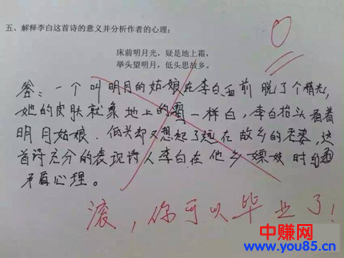 五、解释李白这首诗的意义并分析作者的心理：
床前明月光，疑是地上霜，
举头望明月，低头思故乡。
答：一个叫明月的姑娘在李白面前脱了个精光，
她的皮肤就象地上的霜一样白，李白抬头看着
明月姑娘，低头却又想起了远在故乡的老婆，这
首诗充分的表现诗人李白在他乡嫖妓时的
矛盾心理。
滚，你可以毕业了！
中赚网
www.you85.cn